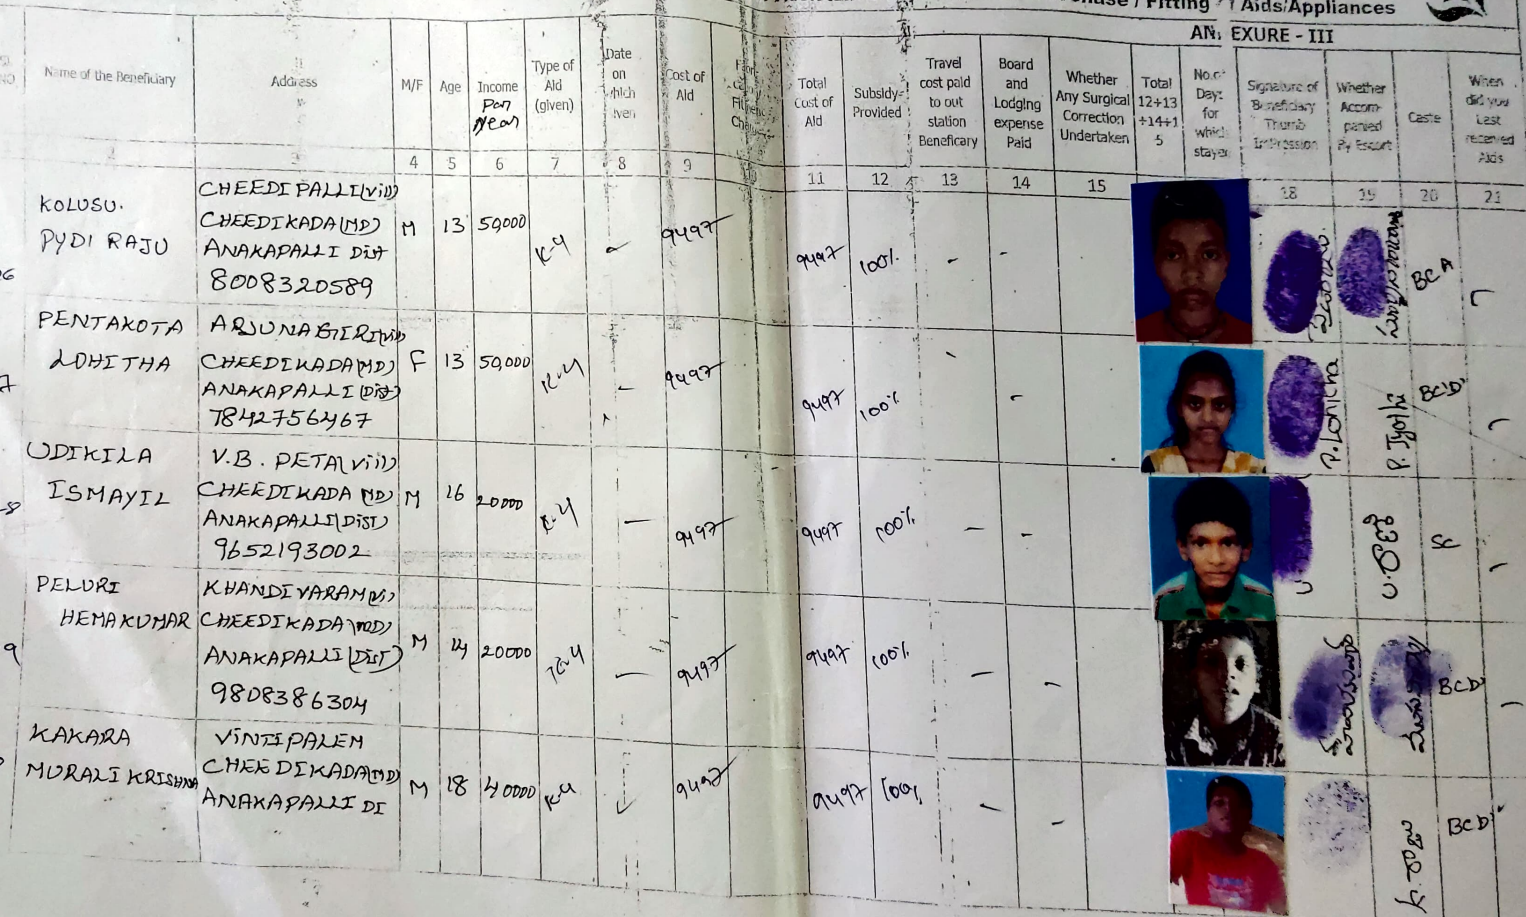 Fitting
Aids/Appliances
ANNEXURE - III
Name of the Beneficiary
Address
M/F
Age
Income
Per
year
Type of
Aid
(given)
Date
on
which
given
Cost of
Aid
Total
Cost of
Aid
Subsidy
Provided
Travel
cost paid
to out
station
Beneficary
Board
and
Lodging
expense
Paid
Whether
Any Surgical
Correction
Undertaken
Total
12+13
+14+1
5
No.of
Days
for
which
stayed
Signature of
Beneficiary
Thumb
Impression
Whether
Accom-
panied
By Escort
Caste
When
did you
Last
received
Aids
3 4 5 6 7 8 9 11 12 13 14 15 18 19 20 21
KOLUSU.
PYDI RAJU
CHEEDIPALLI(Vill)
CHEEDIKADA(MD)
ANAKAPALLI Dist
8008320589
M 13 50,000 K-4 9497 9497 100% - - BC A
PENTAKOTA
LOHITHA
ARJUNAGIRI(Vill)
CHEEDIKADA(MD)
ANAKAPALLI(Dist)
7842756467
F 13 50,000 K-4 - 9497 9497 100% - - P. Lohitha P. Jyothi BC'D'
UDIKILA
ISMAYIL
V.B. PETA(Vill)
CHEEDIKADA (MD)
ANAKAPALLI(DIST)
9652193002
M 16 20000 K-4 - 9497 9497 100% - - SC
9
PELURI
HEMAKUMAR
KHANDIVARAM(Vi)
CHEEDIKADA(MD)
ANAKAPALLI(DIST)
9808386304
M 14 20000 TE-4 - 9497 9497 100% - - BCD'
KAKARA
MURALI KRISHNA
VINTIPALEM
CHEEDIKADA(MD)
ANAKAPALLI DI
M 18 40000 K-4 9497 9497 100% - - BCD'